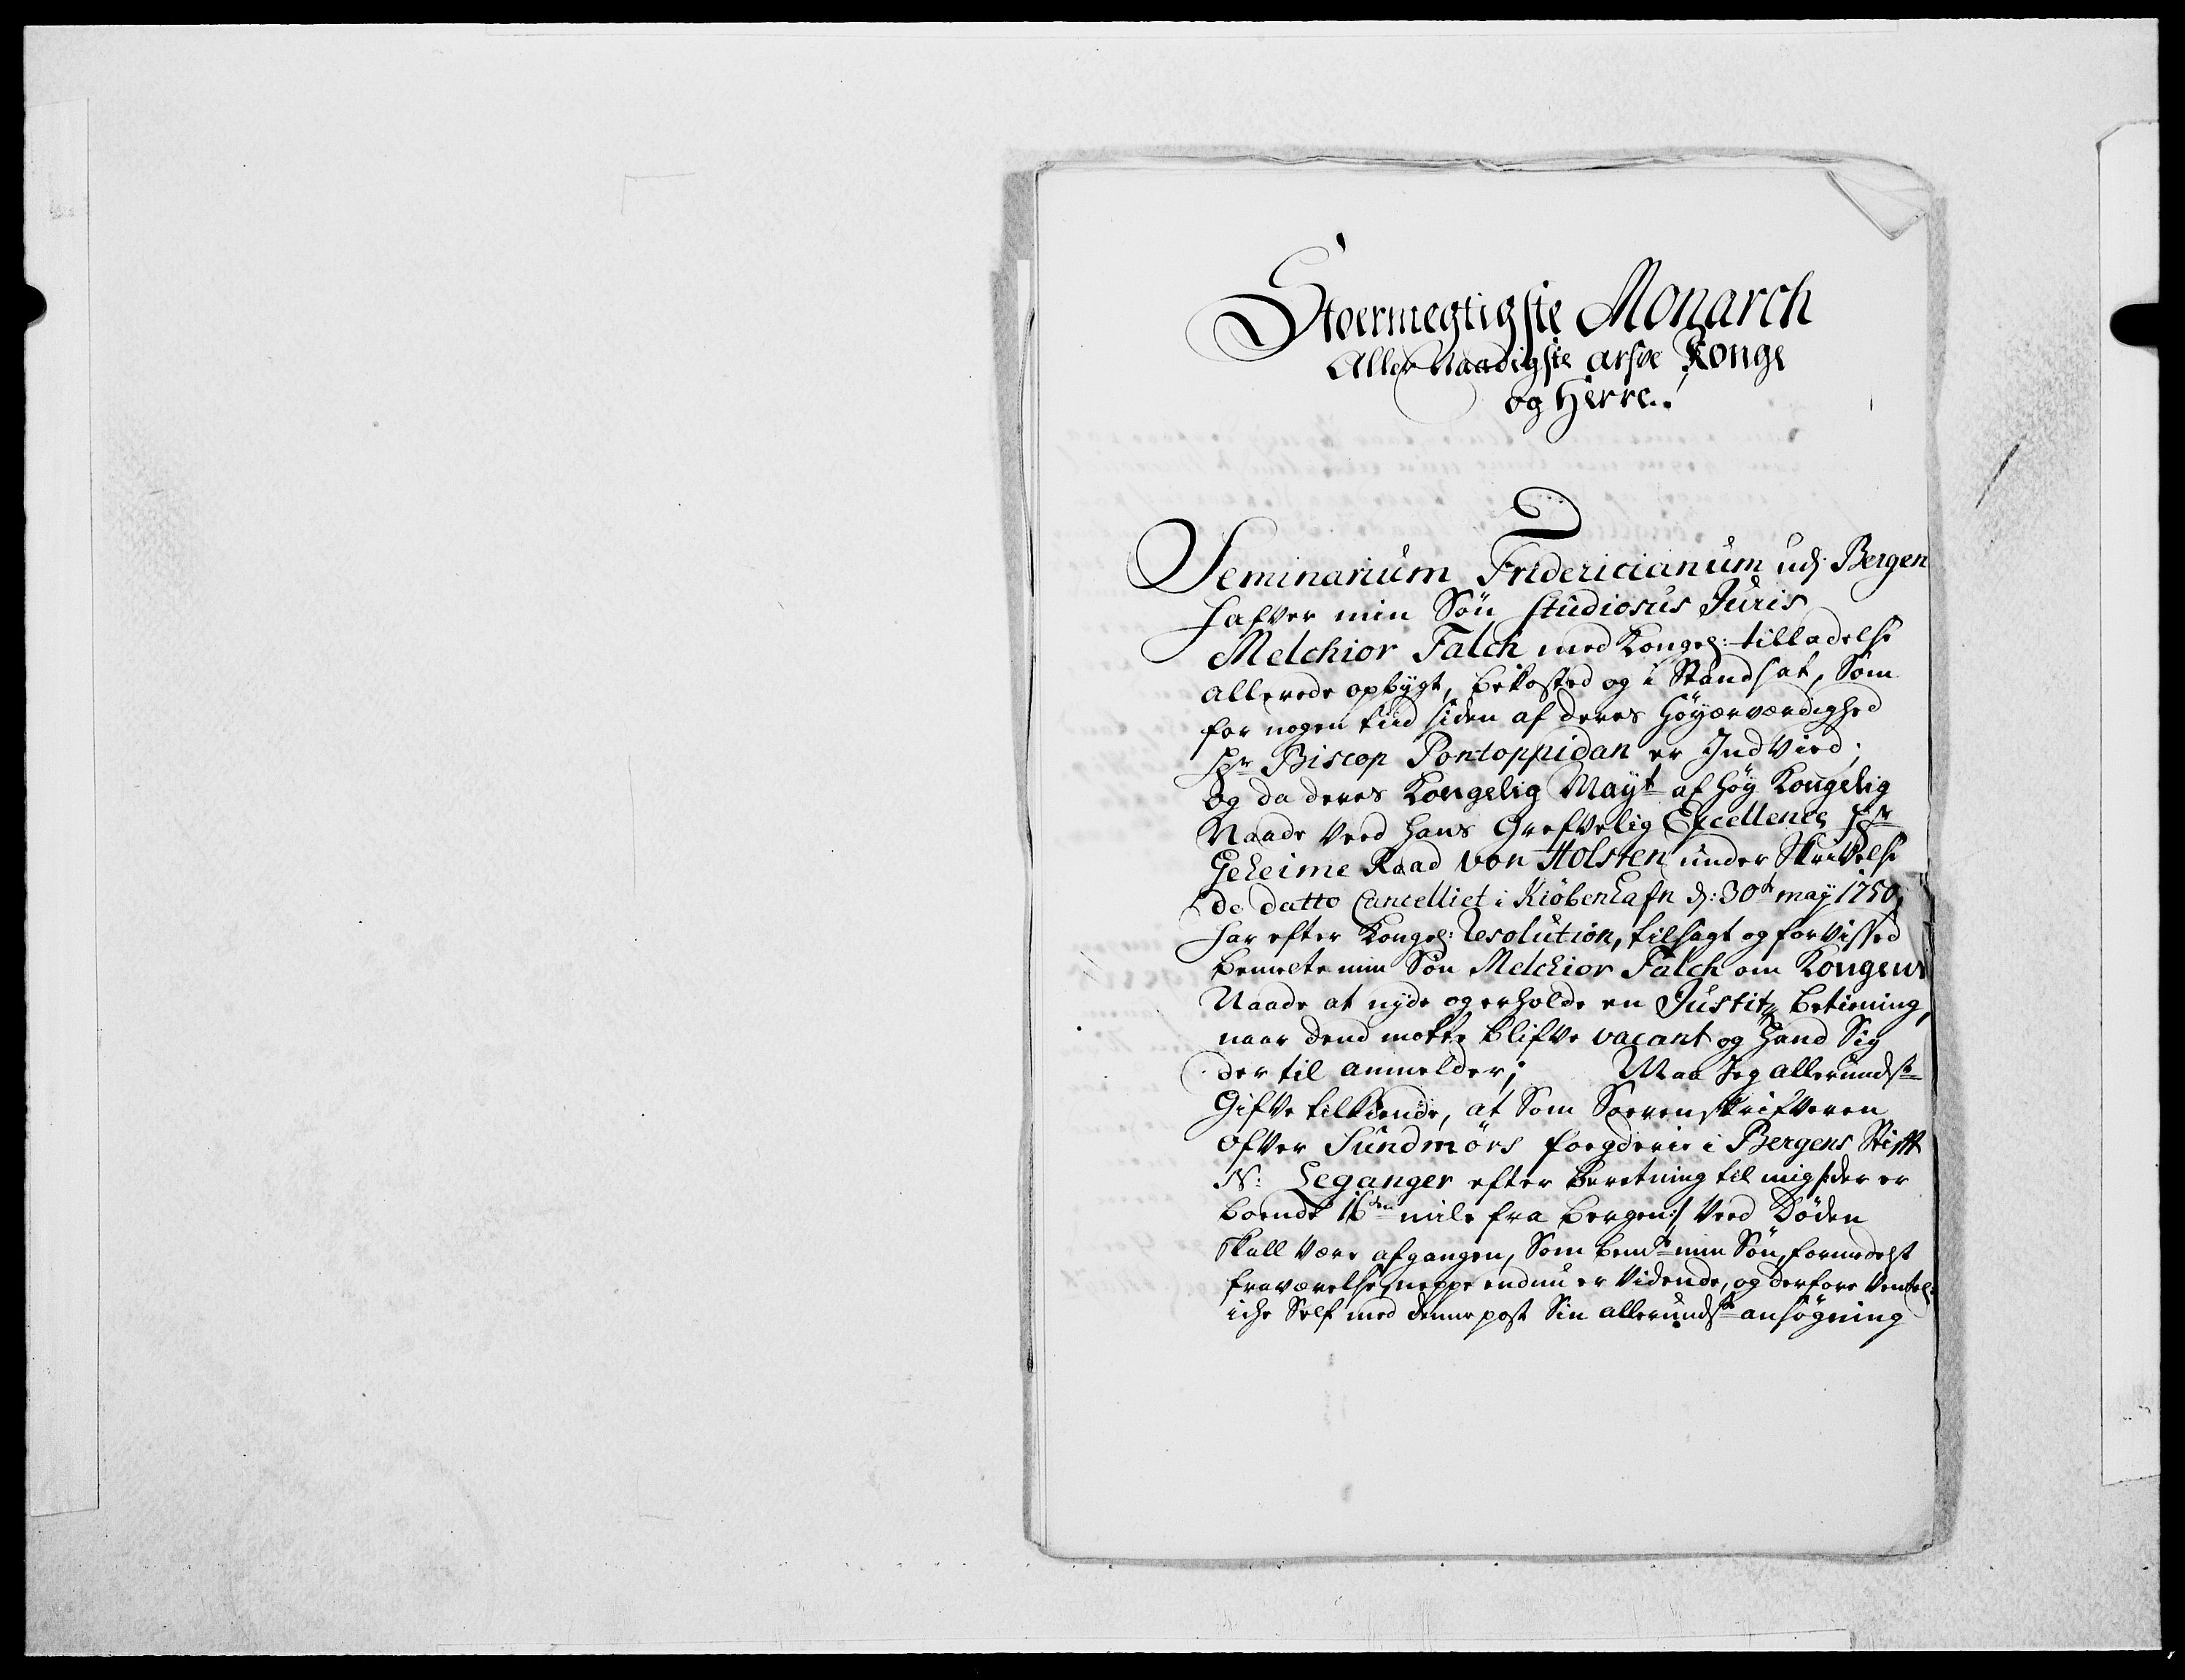 Stoermegtigste Monarch
Aller Naadigste arfve Konge
og Herre!
Seminarium Fridericianum udj Bergen
hafver min Søn Studiosus Juris
Melchior Falch med Kongel: tilladelse
allerede opbygt, bekosted og i Stand sat, Som
for nogen tiid siden af deres Høyærværdighed
Hr Biscop Pontoppidan er Indvied;
og da deres Kongelig Mayt af høy Kongelig
Naade Ved hans Grefvelig Excellence Hr
Geheime Raad von Holsten under Skrivelse
de datto Cancelliet i Kiøbenhafn d: 30te may 1750,
har efter Kongel: Resolution, tilsagt og forvissed
bemelte min Søn Melchior Falch om Kongens
Naade at nyde og erholde en Justitz betiening,
naar dend motte blifve vacant og hand Sig
der til anmelder; Maa Jeg allerundste
Gifve tilkiende, at Som Sorenskrifveren
ofver Sundmørs foegderie i Bergens Stift
N: Leganger efter beretning til mig /:der er
boende 16ten mile fra bergen:/ Ved Døden
skall være afgangen, Som bemte min Søn, formedelst
fraværelse, neppe endnu er Vidende, og derfore Ventel:
iche Self med denne post Sin allerundste ansøgning